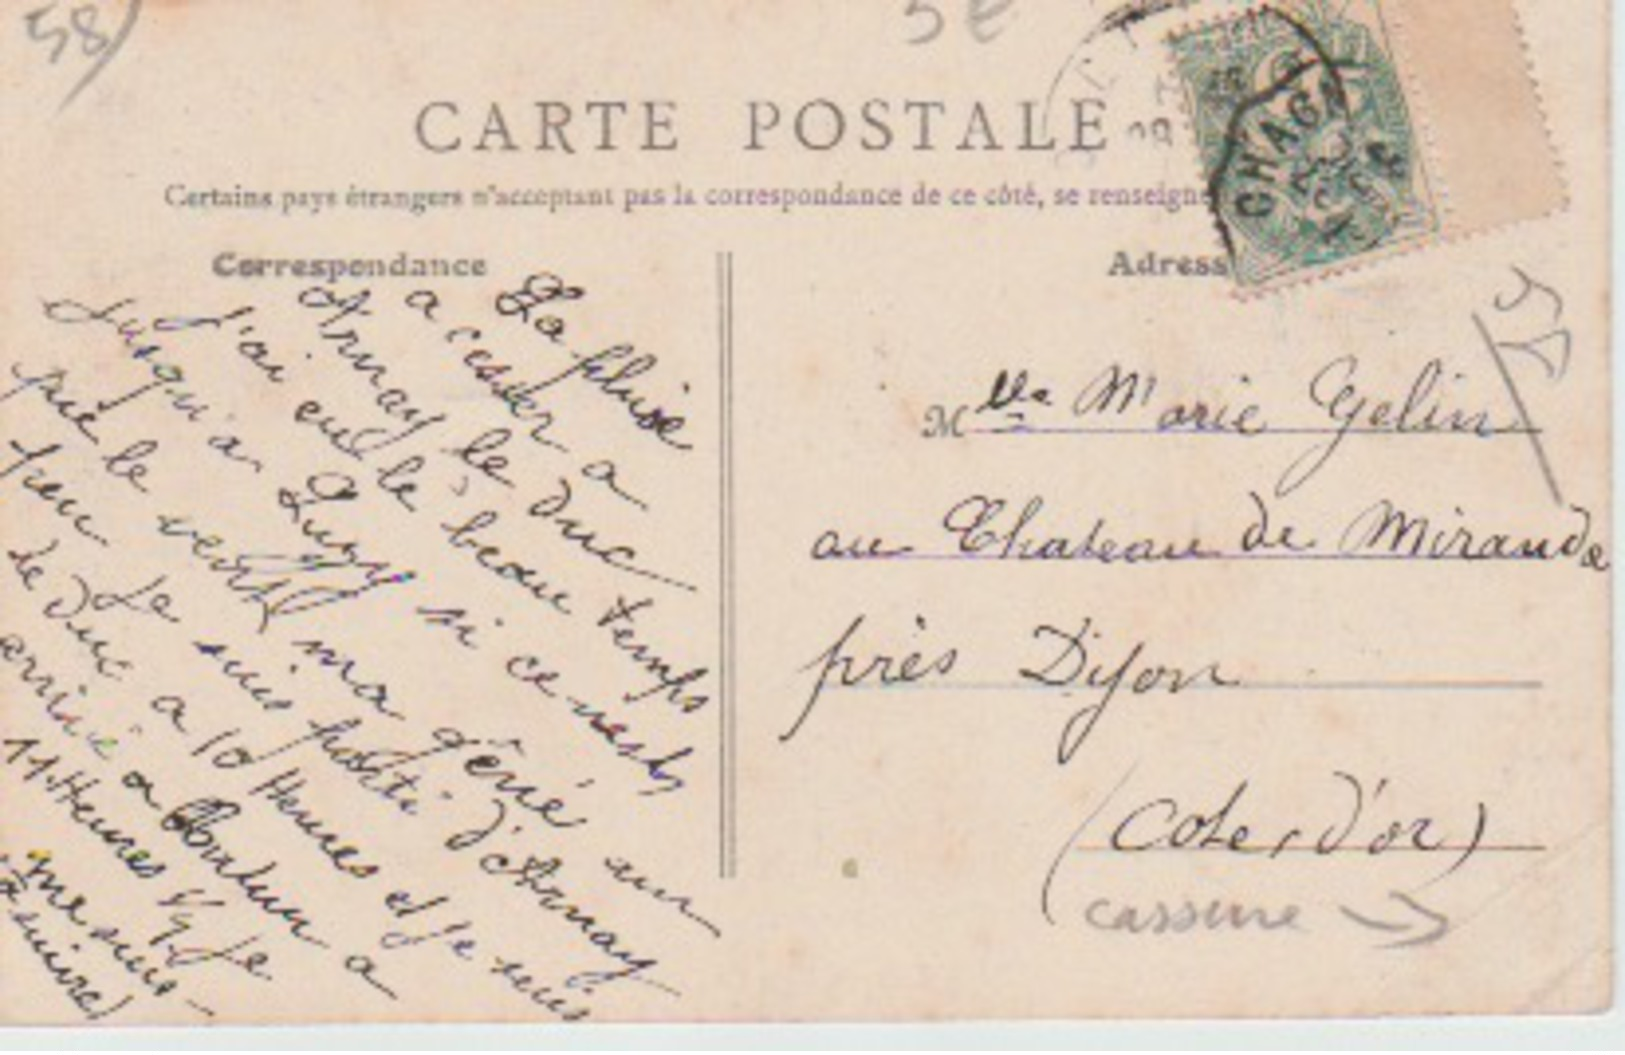 58
5 €
CARTE POSTALE
Certains pays étrangers n'acceptent pas la correspondance de ce côté, se renseigne
Correspondance
Adress
CHAGN
La pluie
a cesser a
Arnay le Duc
j'ai eu le beau temps
jusqu'a Luzy si ce nest
que le vent ma gêné un
peu. Je suis parti d'Arnay
le Duc a 10 Heures et je suis
arrivé a Autun a
11 Heures 1/4 Je
me suis
(a suivre)
Mlle Marie Gelin
au Chateau de Mirande
près Dijon
(Cote, d'or)
cassure →